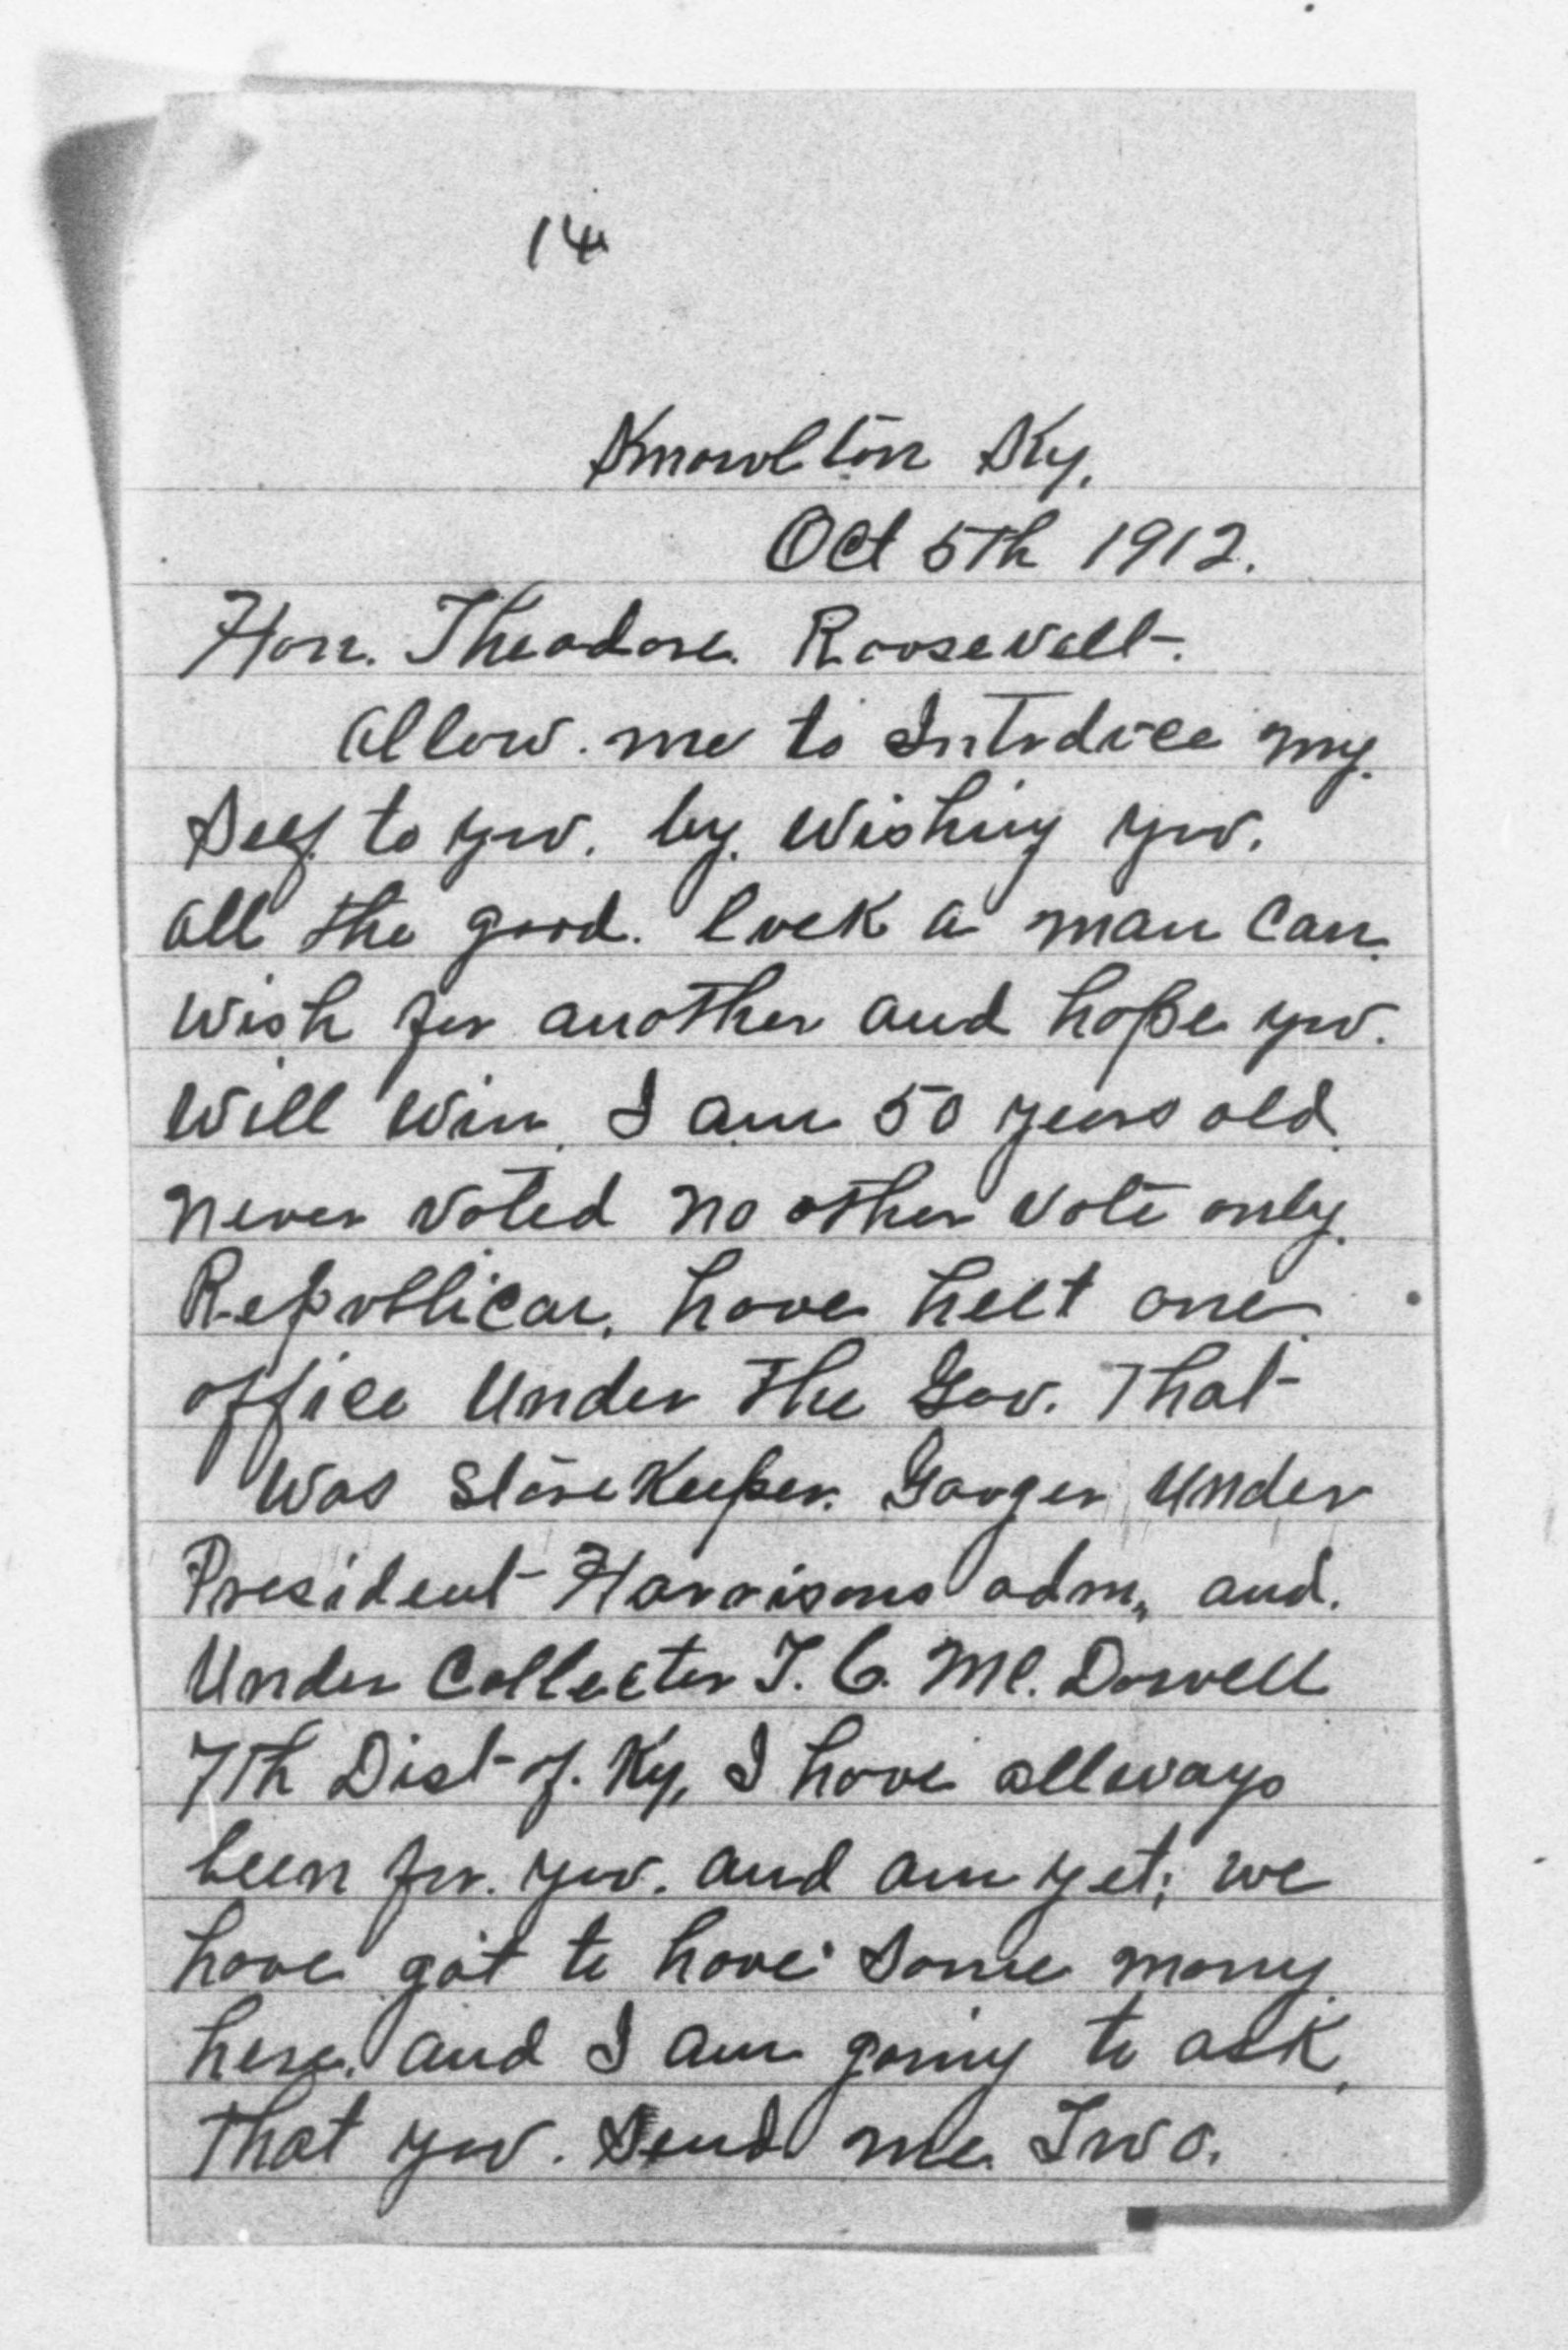 14
Knowlton Ky,
Oct 5th 1912.
Hon. Theodore Roosevelt.
Allow me to Intrduce my
Self to you. by wishing you.
all the good. luck a man can
wish for another and hope you.
will win, I am 50 years old
never voted no other vote only
Republican, have helt one
office under the Gov. That
was storekeeper. Gauger under
President Harrisons adm, and.
Under Collecter T. C. Mc. Dowell
7th Dist of. Ky, I have allways
been for. you. and am yet; we
have got to have some mony
here. and I am going to ask,
That you. Send me Two.